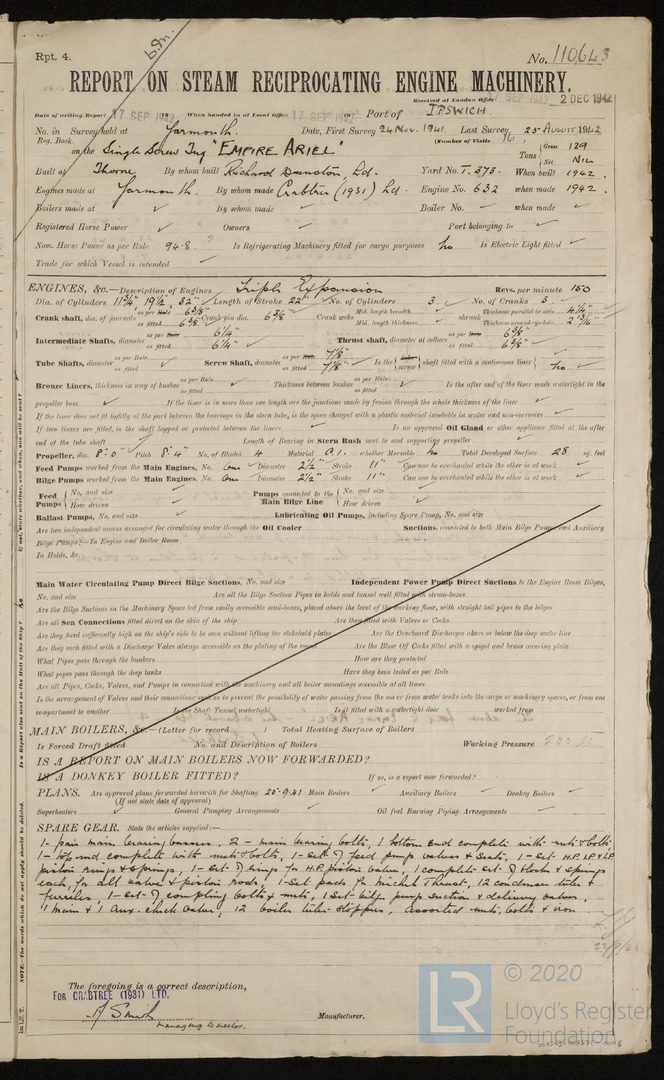 Rpt. 4.
No. 110643
REPORT ON STEAM RECIPROCATING ENGINE MACHINERY.
Received at London Office 2 DEC 1942
Date of writing Report 17 SEP 1942 When handed in at Local Office 17 SEP 1942 Port of IPSWICH.
No. in Survey held at Yarmouth. Date, First Survey 24 Nov. 1941. Last Survey 25 August 1942
Reg. Book. (Number of Visits 16)
on the Single Screw Tug "EMPIRE ARIEL" Tons Gross 129 Net Nil
Built at Thorne By whom built Richard Dunston, Ld. Yard No. T.373. When built 1942.
Engines made at Yarmouth. By whom made Crabtree (1931) Ld. Engine No. 632 when made 1942.
Boilers made at ✓ By whom made ✓ Boiler No. ✓ when made ✓
Registered Horse Power ✓ Owners ✓ Port belonging to ✓
Nom. Horse Power as per Rule 94.8 ? Is Refrigerating Machinery fitted for cargo purposes No Is Electric Light fitted ✓
Trade for which Vessel is intended ✓
ENGINES, &c.—Description of Engines Triple Expansion Revs. per minute 150
Dia. of Cylinders 11¾" 19½" 32" Length of Stroke 22" No. of Cylinders 3. No. of Cranks 3.
Crank shaft, dia. of journals as per Rule 6⅜" as fitted 6⅜" Crank pin dia. 6⅜" Crank webs Mid. length breadth ✓ Mid. length thickness ✓ shrunk Thickness parallel to axis 4¼" Thickness around eyehole 2 13/16"
Intermediate Shafts, diameter as per Rule 6¼" as fitted 6¼" Thrust shaft, diameter at collars as per Rule 6⅜" as fitted 6⅜"
Tube Shafts, diameter as per Rule ✓ as fitted Screw Shaft, diameter as per Rule 7⅛" as fitted 7⅛" Is the { tube screw } shaft fitted with a continuous liner { No
Bronze Liners, thickness in way of bushes as per Rule ✓ as fitted Thickness between bushes as per Rule ✓ as fitted Is the after end of the liner made watertight in the
propeller boss ✓ If the liner is in more than one length are the junctions made by fusion through the whole thickness of the liner ✓
If the liner does not fit tightly at the part between the bearings in the stern tube, is the space charged with a plastic material insoluble in water and non-corrosive ✓
If two liners are fitted, is the shaft lapped or protected between the liners ✓ Is an approved Oil Gland or other appliance fitted at the after
end of the tube shaft Length of Bearing in Stern Bush next to and supporting propeller ✓
Propeller, dia. 8'.0" Pitch 8'.4" No. of Blades 4 Material C.I. whether Moveable No Total Developed Surface 28 sq. feet
Feed Pumps worked from the Main Engines, No. One Diameter 2½" Stroke 11" Can one be overhauled while the other is at work ✓
Bilge Pumps worked from the Main Engines, No. One Diameter 2½" Stroke 11" Can one be overhauled while the other is at work ✓
Feed Pumps { No. and size How driven ✓ Pumps connected to the Main Bilge Line { No. and size How driven ✓
Ballast Pumps, No. and size ✓ Lubricating Oil Pumps, including Spare Pump, No. and size
Are two independent means arranged for circulating water through the Oil Cooler Suctions, connected to both Main Bilge Pumps and Auxiliary
Bilge Pumps;—In Engine and Boiler Room
In Holds, &c.
Main Water Circulating Pump Direct Bilge Suctions, No. and size Independent Power Pump Direct Suctions to the Engine Room Bilges,
No. and size Are all the Bilge Suction Pipes in holds and tunnel well fitted with strum-boxes
Are the Bilge Suctions in the Machinery Space led from easily accessible mud-boxes, placed above the level of the working floor, with straight tail pipes to the bilges
Are all Sea Connections fitted direct on the skin of the ship Are they fitted with Valves or Cocks
Are they fixed sufficiently high on the ship's side to be seen without lifting the stokehold plates Are the Overboard Discharges above or below the deep water line
Are they each fitted with a Discharge Valve always accessible on the plating of the vessel Are the Blow Off Cocks fitted with a spigot and brass covering plate
What Pipes pass through the bunkers How are they protected
What pipes pass through the deep tanks Have they been tested as per Rule
Are all Pipes, Cocks, Valves, and Pumps in connection with the machinery and all boiler mountings accessible at all times
Is the arrangement of Valves and their connections such as to prevent the possibility of water passing from the sea or from water tanks into the cargo or machinery spaces, or from one
compartment to another Is the Shaft Tunnel watertight Is it fitted with a watertight door worked from
MAIN BOILERS, &c.—(Letter for record ) Total Heating Surface of Boilers
Is Forced Draft fitted No. and Description of Boilers Working Pressure 200 lb
IS A REPORT ON MAIN BOILERS NOW FORWARDED?
IS A DONKEY BOILER FITTED? If so, is a report now forwarded?
PLANS. Are approved plans forwarded herewith for Shafting 25.9.41 Main Boilers ✓ Auxiliary Boilers ✓ Donkey Boilers ✓
(If not state date of approval)
Superheaters ✓ General Pumping Arrangements ✓ Oil fuel Burning Piping Arrangements ✓
SPARE GEAR. State the articles supplied:—
1- pair main bearing brasses, 2- main bearing bolts, 1 bottom end complete with nuts & bolts,
1- top end complete with nuts & bolts, 1- set of feed pump valves & seats, 1- set H.P. I.P. & L.P.
piston rings & springs, 1- set of rings for H.P. piston valve, 1 complete set of blocks & springs
each, for all valve & piston rods, 1- set pads for Michel Thrust, 12 condenser tubes &
ferrules, 1- set of coupling bolts & nuts, 1 Set bilge pump suction & delivery valves,
1 main & 1 Aux. check valve, 12 boiler tube stoppers, assorted nuts, bolts & iron.
The foregoing is a correct description,
FOR CRABTREE (1931) LTD.
A Smith
Managing Director.
Manufacturer.
NOTE.—The words which do not apply should be deleted.
© 2020
LR
Lloyd's Register
Foundation